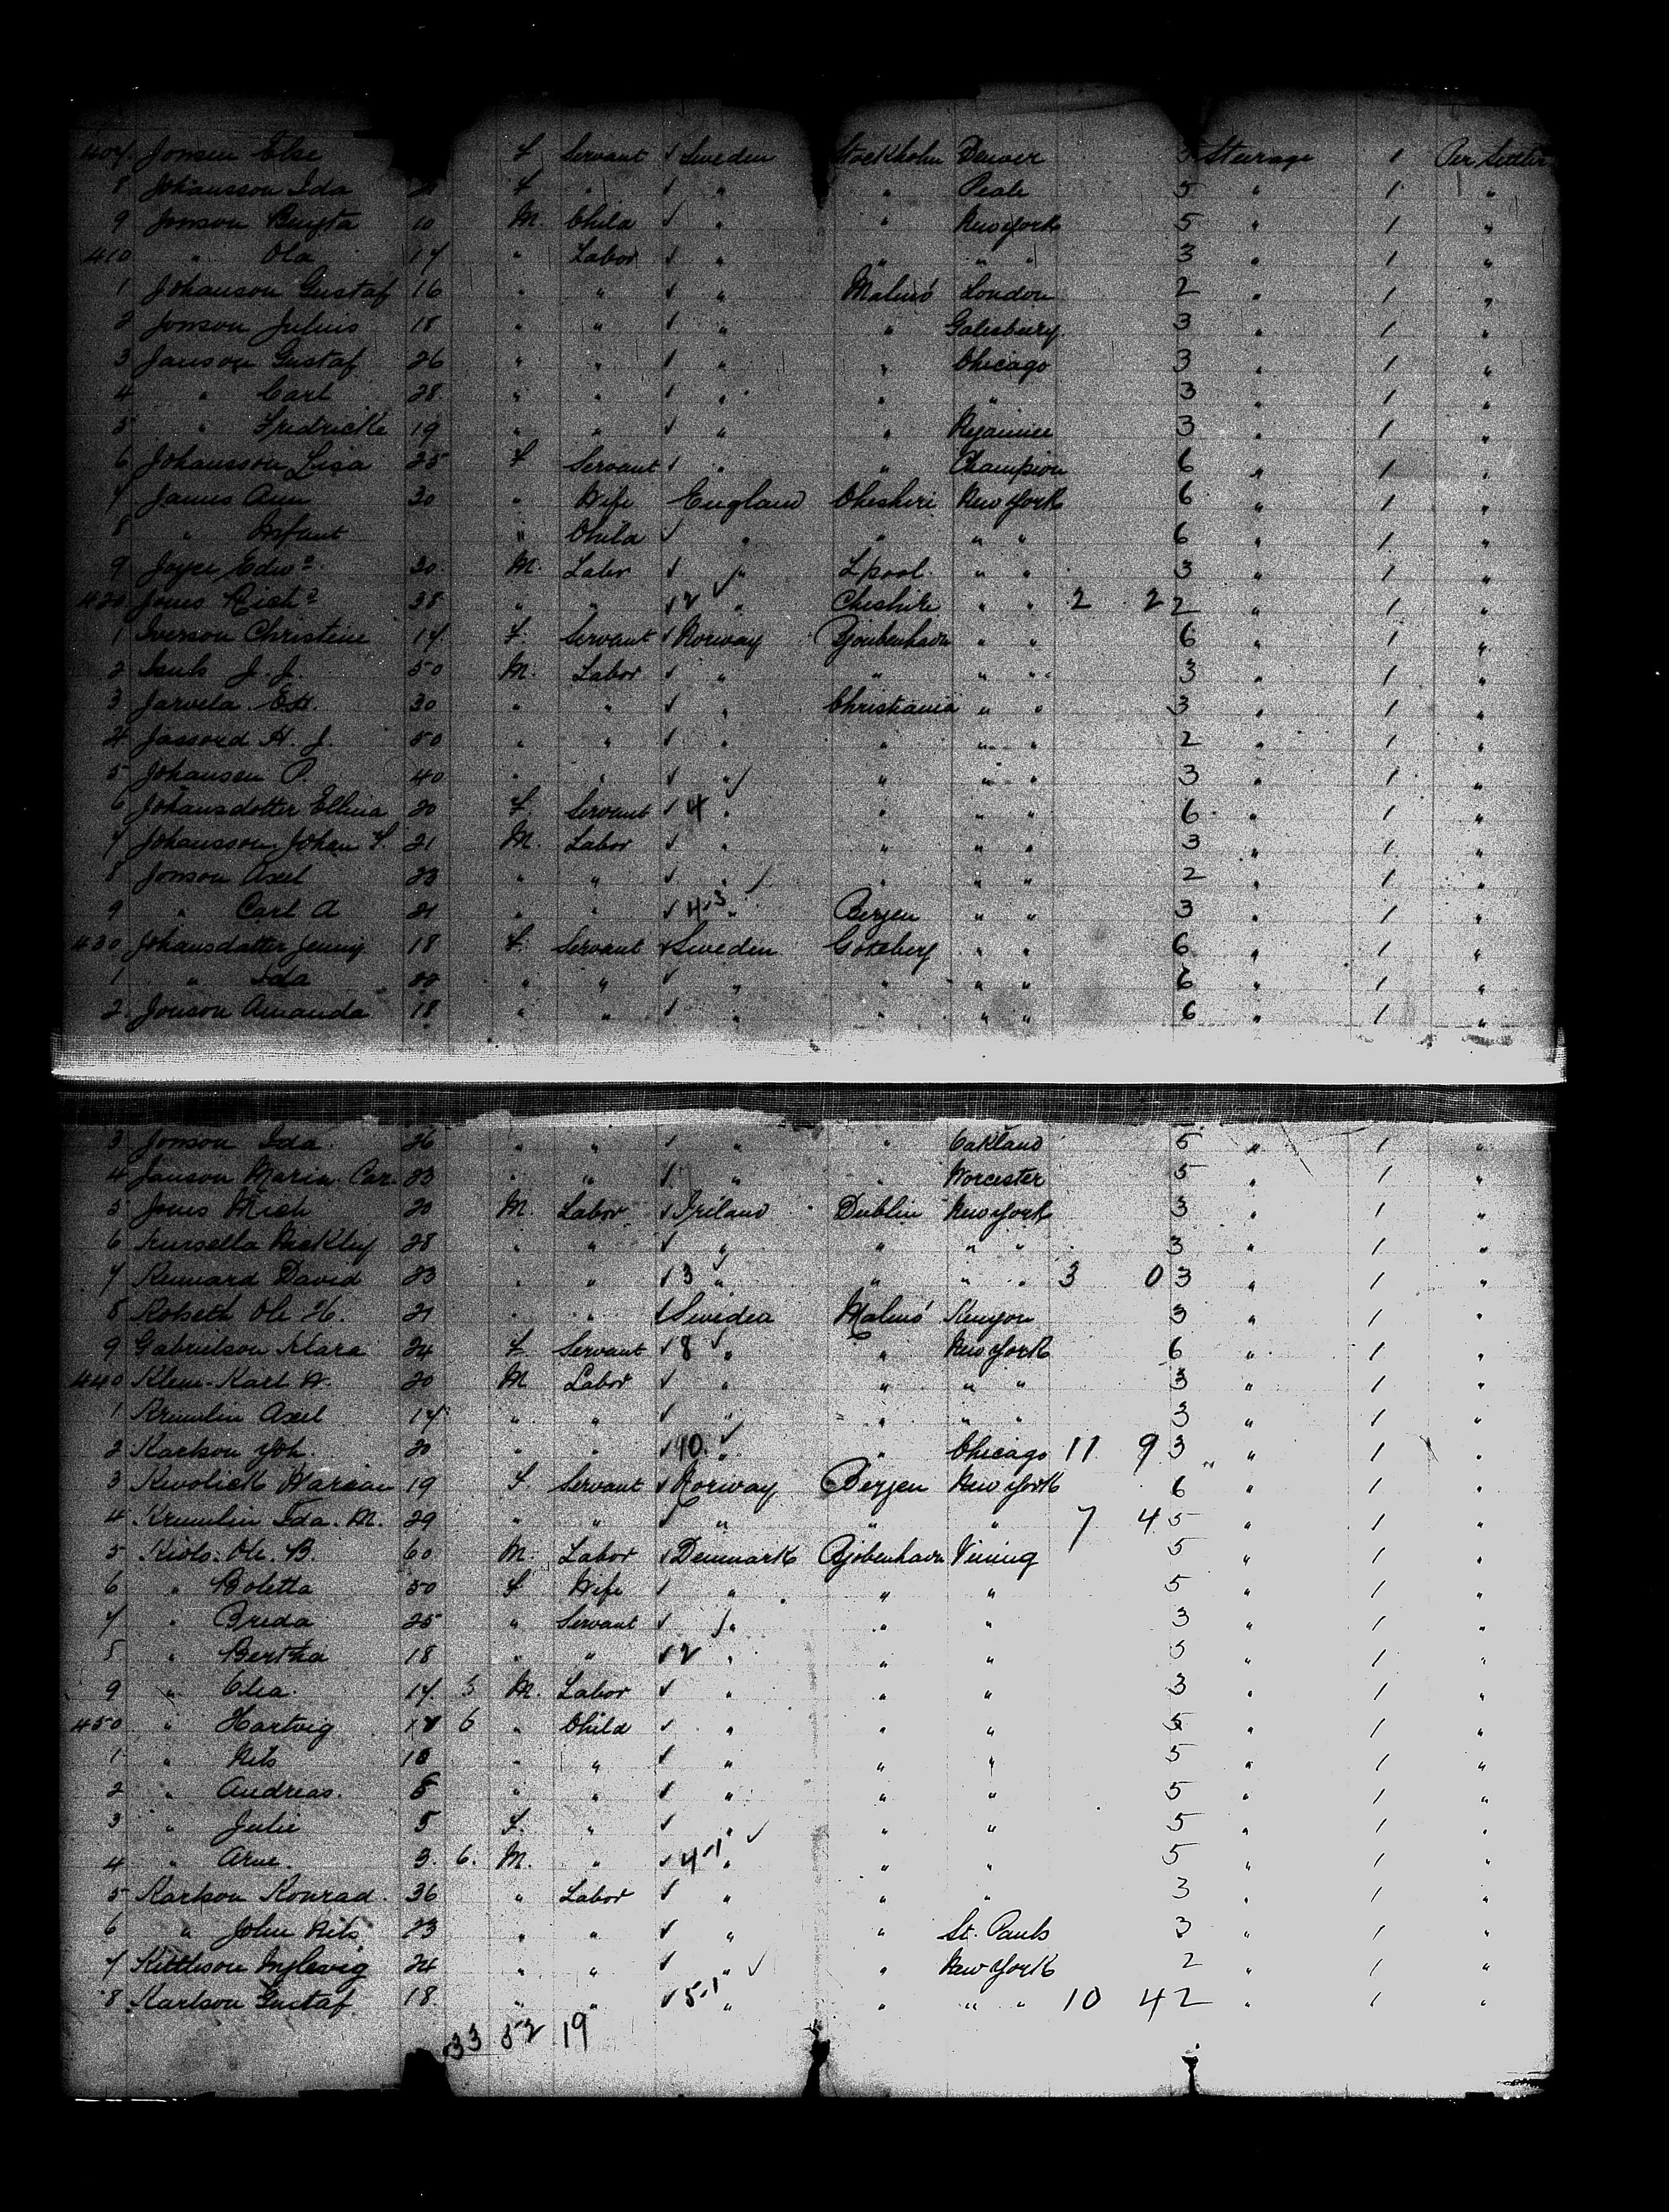 407. Jonsen Else F Servant √ Sweden Stockholm Denver 3 Steerage 1 Per Settler
8 Johansson Ida F " √ " " Peale 5 " 1 "
9 Jonson Bengta 10 M. Child √ " " New York 5 " 1 "
410 " Ola 17 " Labor √ " " " " 3 " 1 "
1 Johanson Gustaf 16 " " √ " Malmö London 2 " 1 "
2 Jonson Julius 18 " " √ " " Galesburg. 3 " 1 "
3 Janson Gustaf 26 " " √ " " Chicago 3 " 1 "
4 " Carl 28 " " √ " " " 3 " 1 "
5 " Fredricke 19 " " √ " " 3 " 1 "
6 Johansson Lisa 25 F Servant √ " " Champion 6 " 1 "
7 James Ann 30 " Wife England Cheshire New York 6 " 1 "
8 " Infant " Child √ " " " " 6 " 1 "
9 Joyce Edwd. 30 M. Labr √ " Lpool. " " 3 " 1 "
420 Jones Richd 38 " " √ 2 " Cheshire " " 2 2 2 " 1 "
1 Iverson Christine 17 F Servant √ Norway Kjoubenhavn " " 6 " 1 "
2 J. J. 50 M. Labor √ " " " " 3 " 1 "
3 Jarvela 30 " " √ " Christiania " " 3 " 1 "
4 H. J. 50 " " √ " " " " 2 " 1 "
5 Johansen P. 40 " " √ " " " " 3 " 1 "
6 Johansdotter Ellina 20 F Servant √ 4 " " " " 6 " 1 "
7 Johansson Johan F. 21 M. Labor √ " " " " 3 " 1 "
8 Jonson Axel 23 " " √ " " " " 2 " 1 "
9 " Carl A 21 " " √ 4-3 " Bergen " " 3 " 1 "
430 Johansdatter Jenny 18 F Servant √ Sweden Goteberg " " 6 " 1 "
1 " Ida " " √ " " " " 6 " 1 "
2 Jonson Amanda 18 " " √ " " " " 6 " 1 "
3 Jonson Ida 26 " " √ " " Oakland 5 " 1 "
4 Janson Maria Car. 23 " " √ " " Worcester 5 " 1 "
5 Jones Mich 20 M. Labor √ Ireland Dublin New York 3 " 1 "
6 28 " " √ " " " " 3 " 1 "
7 Kennard David 23 " " √ 3 " " " " 3 0 3 " 1 "
8 Kolseth Ole H. 21 " " √ Sweden Malmö Kenyon 3 " 1 "
9 Gabrielson Klara 24 F Servant √ 8 " " New York 6 " 1 "
440 Klem-Karl W. 20 M Labor √ " " " " 3 " 1 "
1 Kremlin Axel 17 " " √ " " " " 3 " 1 "
2 Karlson Joh. 20 " " √ 10. " " Chicago 11 9 3 " 1 "
3 19 F. Servant √ Norway Bergen New York 6 " 1 "
4 Kremlin Ida. M. 29 " " √ " " " 7 4 5 " 1 "
5 Ole. B. 60 M. Labor √ Denmark Kjobenhavn Vining 5 " 1 "
6 " Boletta 50 F Wife √ " " " 5 " 1 "
7 " Breda 25 " Servant √ " " " 3 " 1 "
8 " Bertha 18 " " √ 2 " " " 3 " 1 "
9 " 17. 5 M. Labor √ " " " 3 " 1 "
450 " Hartvig 6 " Child √ " " " 5 " 1 "
1 " Nils 10 " " √ " " " 5 " 1 "
2 " Andreas. 8 " " √ " " " 5 " 1 "
3 " Julie 5 F. " √ " " " 5 " 1 "
4 " Arne. 3. 6. M. " √ 4-1 " " " 5 " 1 "
5 Karlson Konrad. 36 " Labor √ " " " 3 " 1 "
6 " John Nils 23 " " √ " " St. Pauls 3 " 1 "
7 Kittleson 24 " " √ " " New York 2 " 1 "
8 Karlson Gustaf 18. " " √ 5-1 " " " " 10 4 2 " 1 "
33 52 19